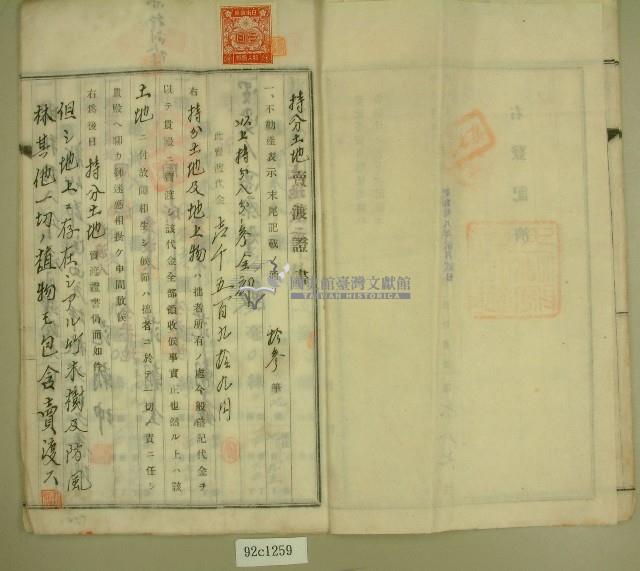 持分土地賣渡證書
一、不動産表示 末尾記載ノ通 拾參筆
以上持分八分參全部
此賣渡代金 壹仟五百九拾九円
右持分土地及地上物ハ拙者所有ノ處今般登記代金ヲ
以テ貴殿ニ賣渡シ該代金全部領收候事實正也然ル上ハ該
土地ニ付故障相生シ候節ハ拙者ニ於テ一切ノ責ニ任シ
貴殿ヘ聊カモ御迷惑相掛ケ申間敷候
右爲後日持分土地賣渡證書仍而如件
但シ地上ニ存在シアル竹木樹及防風
林其他一切ノ植物モ包含賣渡ス
右登記濟
國史館臺灣文獻館
TAIWAN HISTORICA
92c1259